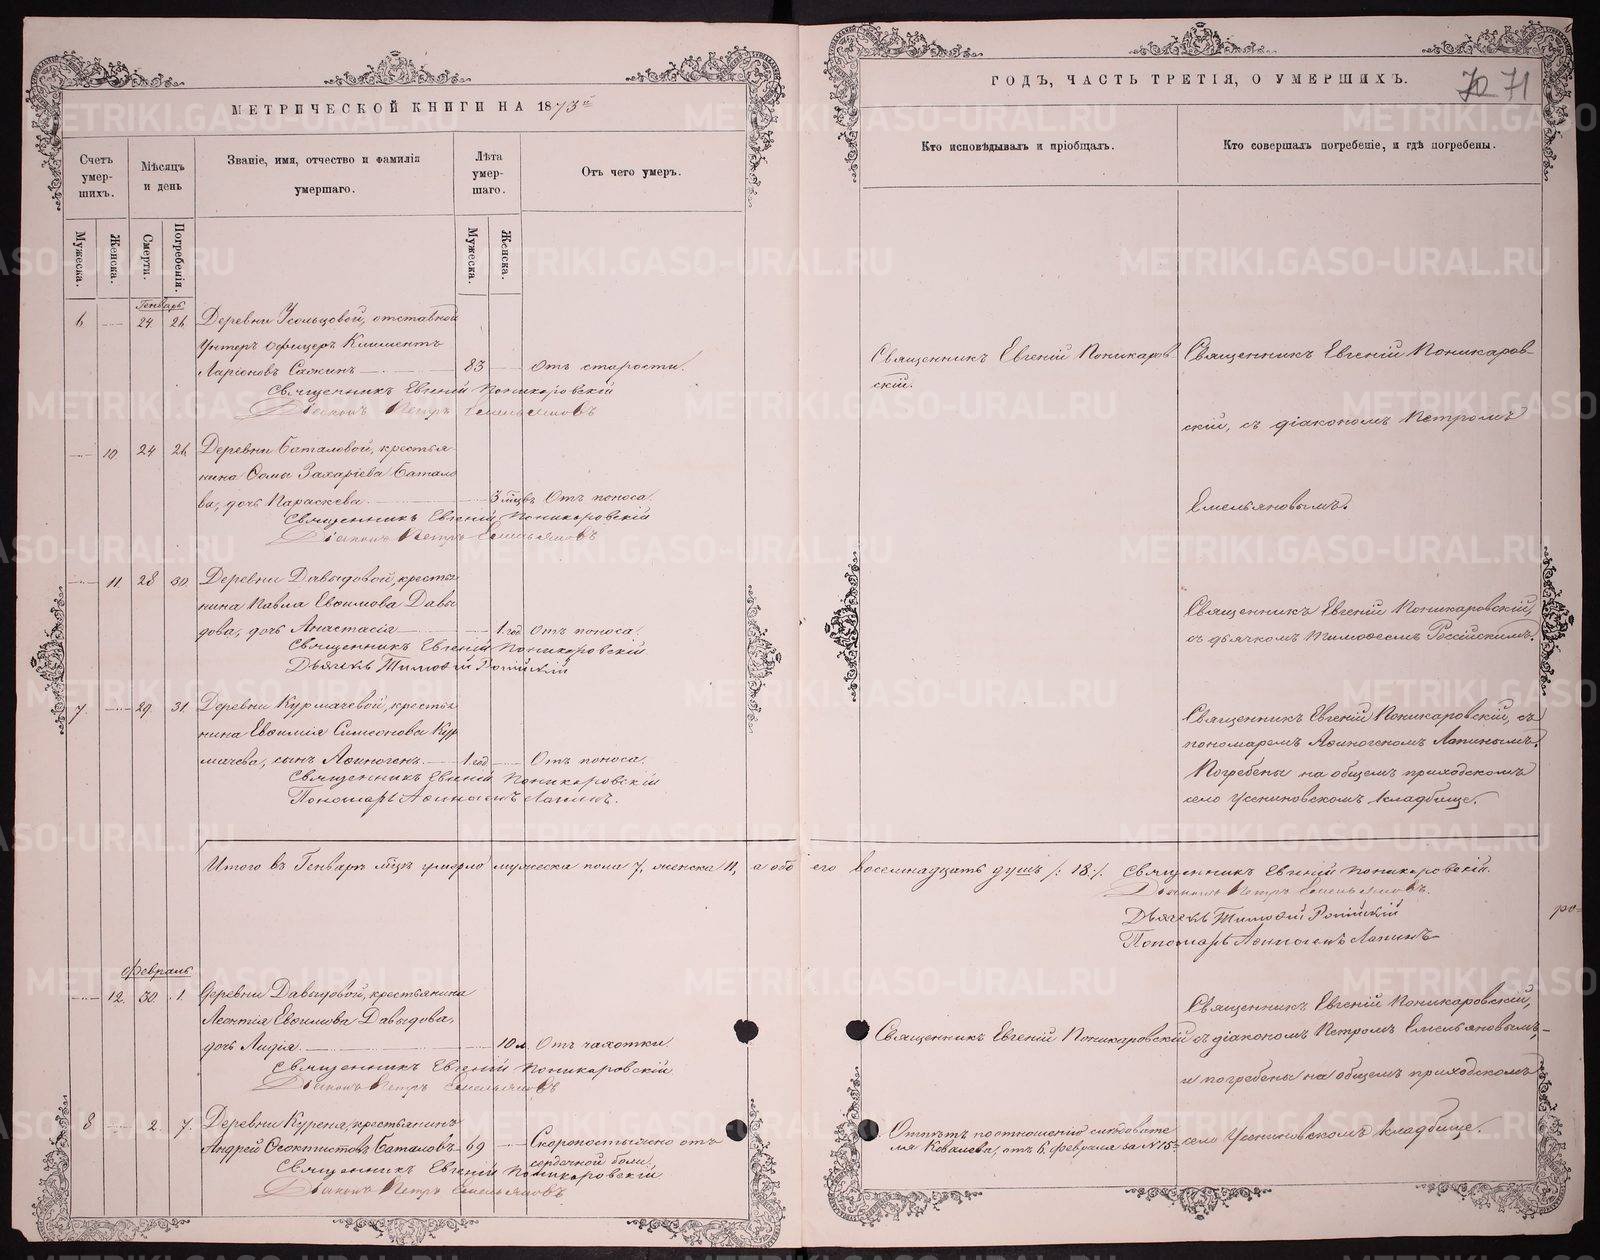 МЕТРИЧЕСКОЙ КНИГИ НА 1873й
ГОДЪ, ЧАСТЬ ТРЕТІЯ, О УМЕРШИХЪ.
70 71
Счетъ умер-шихъ.
Мѣсяцъ и день
Званіе, имя, отчество и фамилія
умершаго.
Лѣта умер-шаго.
Отъ чего умеръ.
Кто исповѣдывалъ и пріобщалъ.
Кто совершалъ погребеніе, и гдѣ погребены.
Мужеска.
Женска.
Смерти.
Погребенія.
Мужеска.
Женска.
Генварь
6 24 26 Деревни Усольцовой, отставной
Унтеръ офицеръ Климентъ
Ларіоновъ 83 Отъ старости.
Священникъ Евгеній Поникаровскій
Діаконъ Петръ Емельяновъ
Священникъ Евгеній Поникаров-
скій.
Священникъ Евгеній Поникаров-
скій, съ діакономъ Петромъ
Емельяновымъ.
10 24 26 Деревни Баталовой, крестья-
нина Ѳомы Захаріева Батало
ва, дочь Параскева 3 мцвъ Отъ поноса.
Священникъ Евгеній Поникаровскій
Діаконъ Петръ Емельяновъ
11 28 30 Деревни Давыдовой, крестья
нина Павла Евѳимова Давы
дова, дочь Анастасія 1 год Отъ поноса.
Священникъ Евгеній Поникаровскій
Дьячекъ Тимоѳей
Священникъ Евгеній Поникаровскій,
съ дьячкомъ Тимоѳеемъ Россійскимъ.
7 29 31 Деревни Курмачевой, крестья
нина Евѳимія Симеонова Кур
мачева, сынъ Аѳиногенъ 1 год Отъ поноса.
Священникъ Евгеній Поникаровскій
Пономарь Аѳиногенъ Лапинъ.
Священникъ Евгеній Поникаровскій, съ
пономаремъ Аѳиногеномъ Лапинымъ.
Погребены на общемъ приходскомъ
село Усениновскомъ кладбище.
Итого въ Генварѣ мцѣ умерло мужеска пола 7, женска 11, а обо его восемнадцать душъ /: 18 :/.
Священникъ Евгеній Поникаровскій.
Діаконъ Петръ Емельяновъ.
Дьячекъ Тимоѳей
Пономарь Аѳиногенъ Лапинъ
Февраль
12. 30 1. Деревни Давыдовой, крестьянина
Леонтія Евѳимова Давыдова,
дочь Лидія 10 л. Отъ чахотки.
Священникъ Евгеній Поникаровскій
Діаконъ Петръ Емельяновъ
Священникъ Евгеній Поникаровскій
Священникъ Евгеній Поникаровскій,
съ діакономъ Петромъ Емельяновымъ,
и погребены на общемъ приходскомъ
село Усениновскомъ кладбище.
8 2. 7. Деревни Куреня, крестьянинъ
Андрей Ѳеоктистовъ Баталовъ 69 Скоропостижно отъ
сердечной боли.
Священникъ Евгеній Поникаровскій
Діаконъ Петръ Емельяновъ
Отпѣтъ по отношенію слѣдовате
ля Ковалева, отъ 6. февраля за №15
METRIKI.GASO-URAL.RU